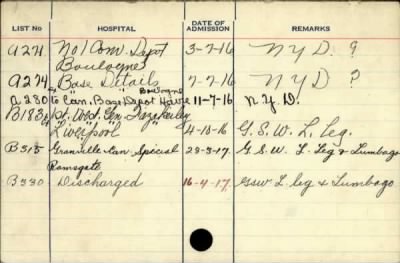 LIST No HOSPITAL DATE OF ADMISSION REMARKS
A271 No 1 Con. Depot 3-7-16 N Y D. ?
Boulogne
A274 " Base Details " Boulogne 7-7-16 N Y D ?
A280 to Can. Base Depot Havre 11-7-16 N.Y.D.
B183 1st West. Gen. Fazakerley
Liverpool 4-10-16 G. S. W. L. Leg.
B315 Granville Can. Special 23-3-17. G. S. W. L. Leg & Lumbago
Ramsgate
B330 Discharged 16-4-17. Gsw L. leg & Lumbago